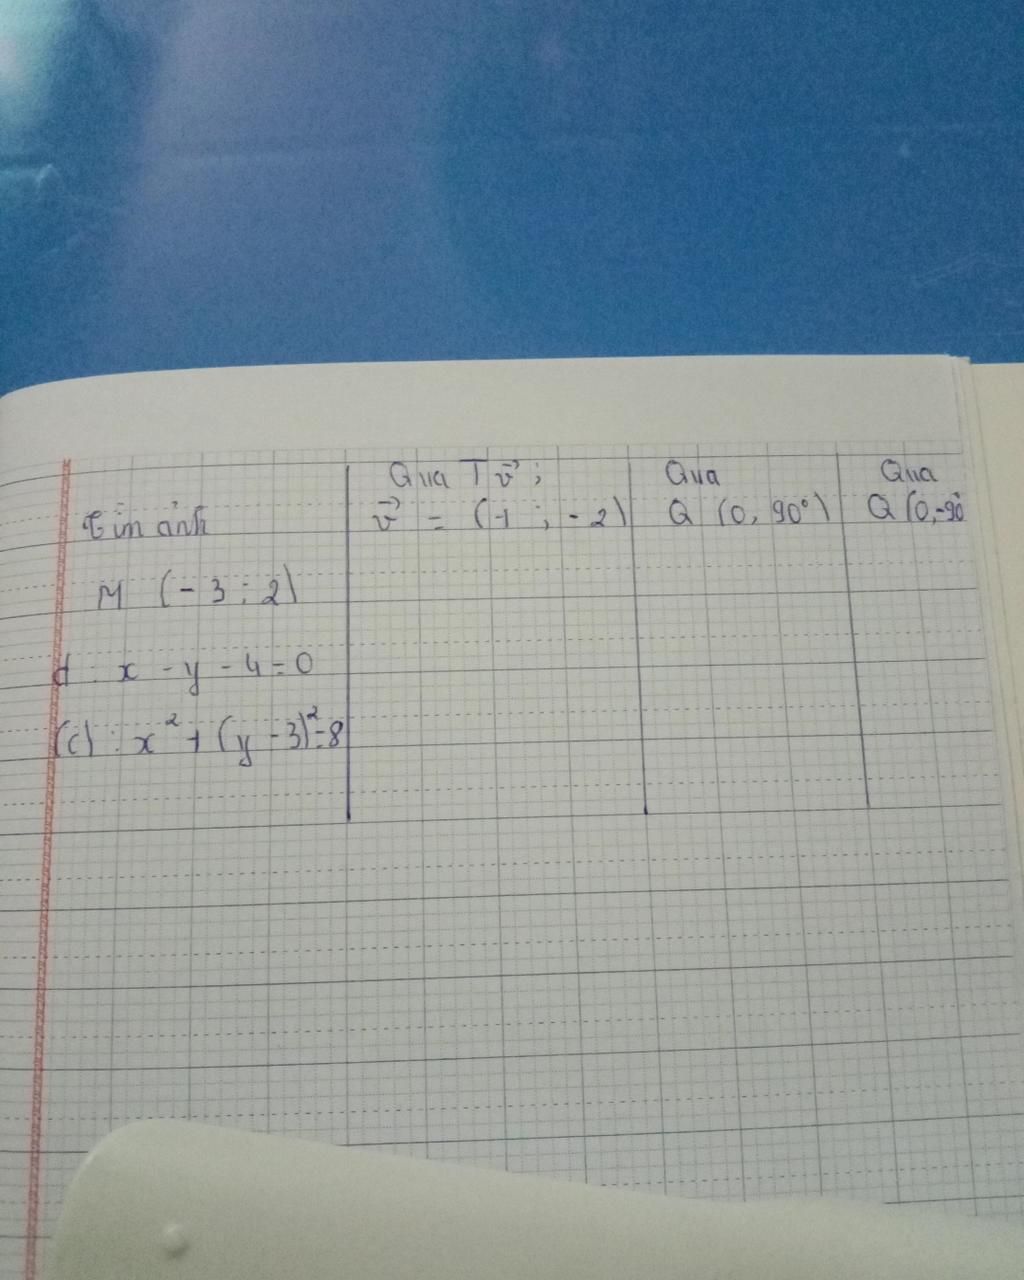 Qua T v⃗ ; Qua Qua
Tìm ảnh v⃗ = (-1 ; -2) Q (0, 90°) Q (0,-90°
M (-3 ; 2)
d : x - y - 4 = 0
(c) : x² + (y - 3)² = 8